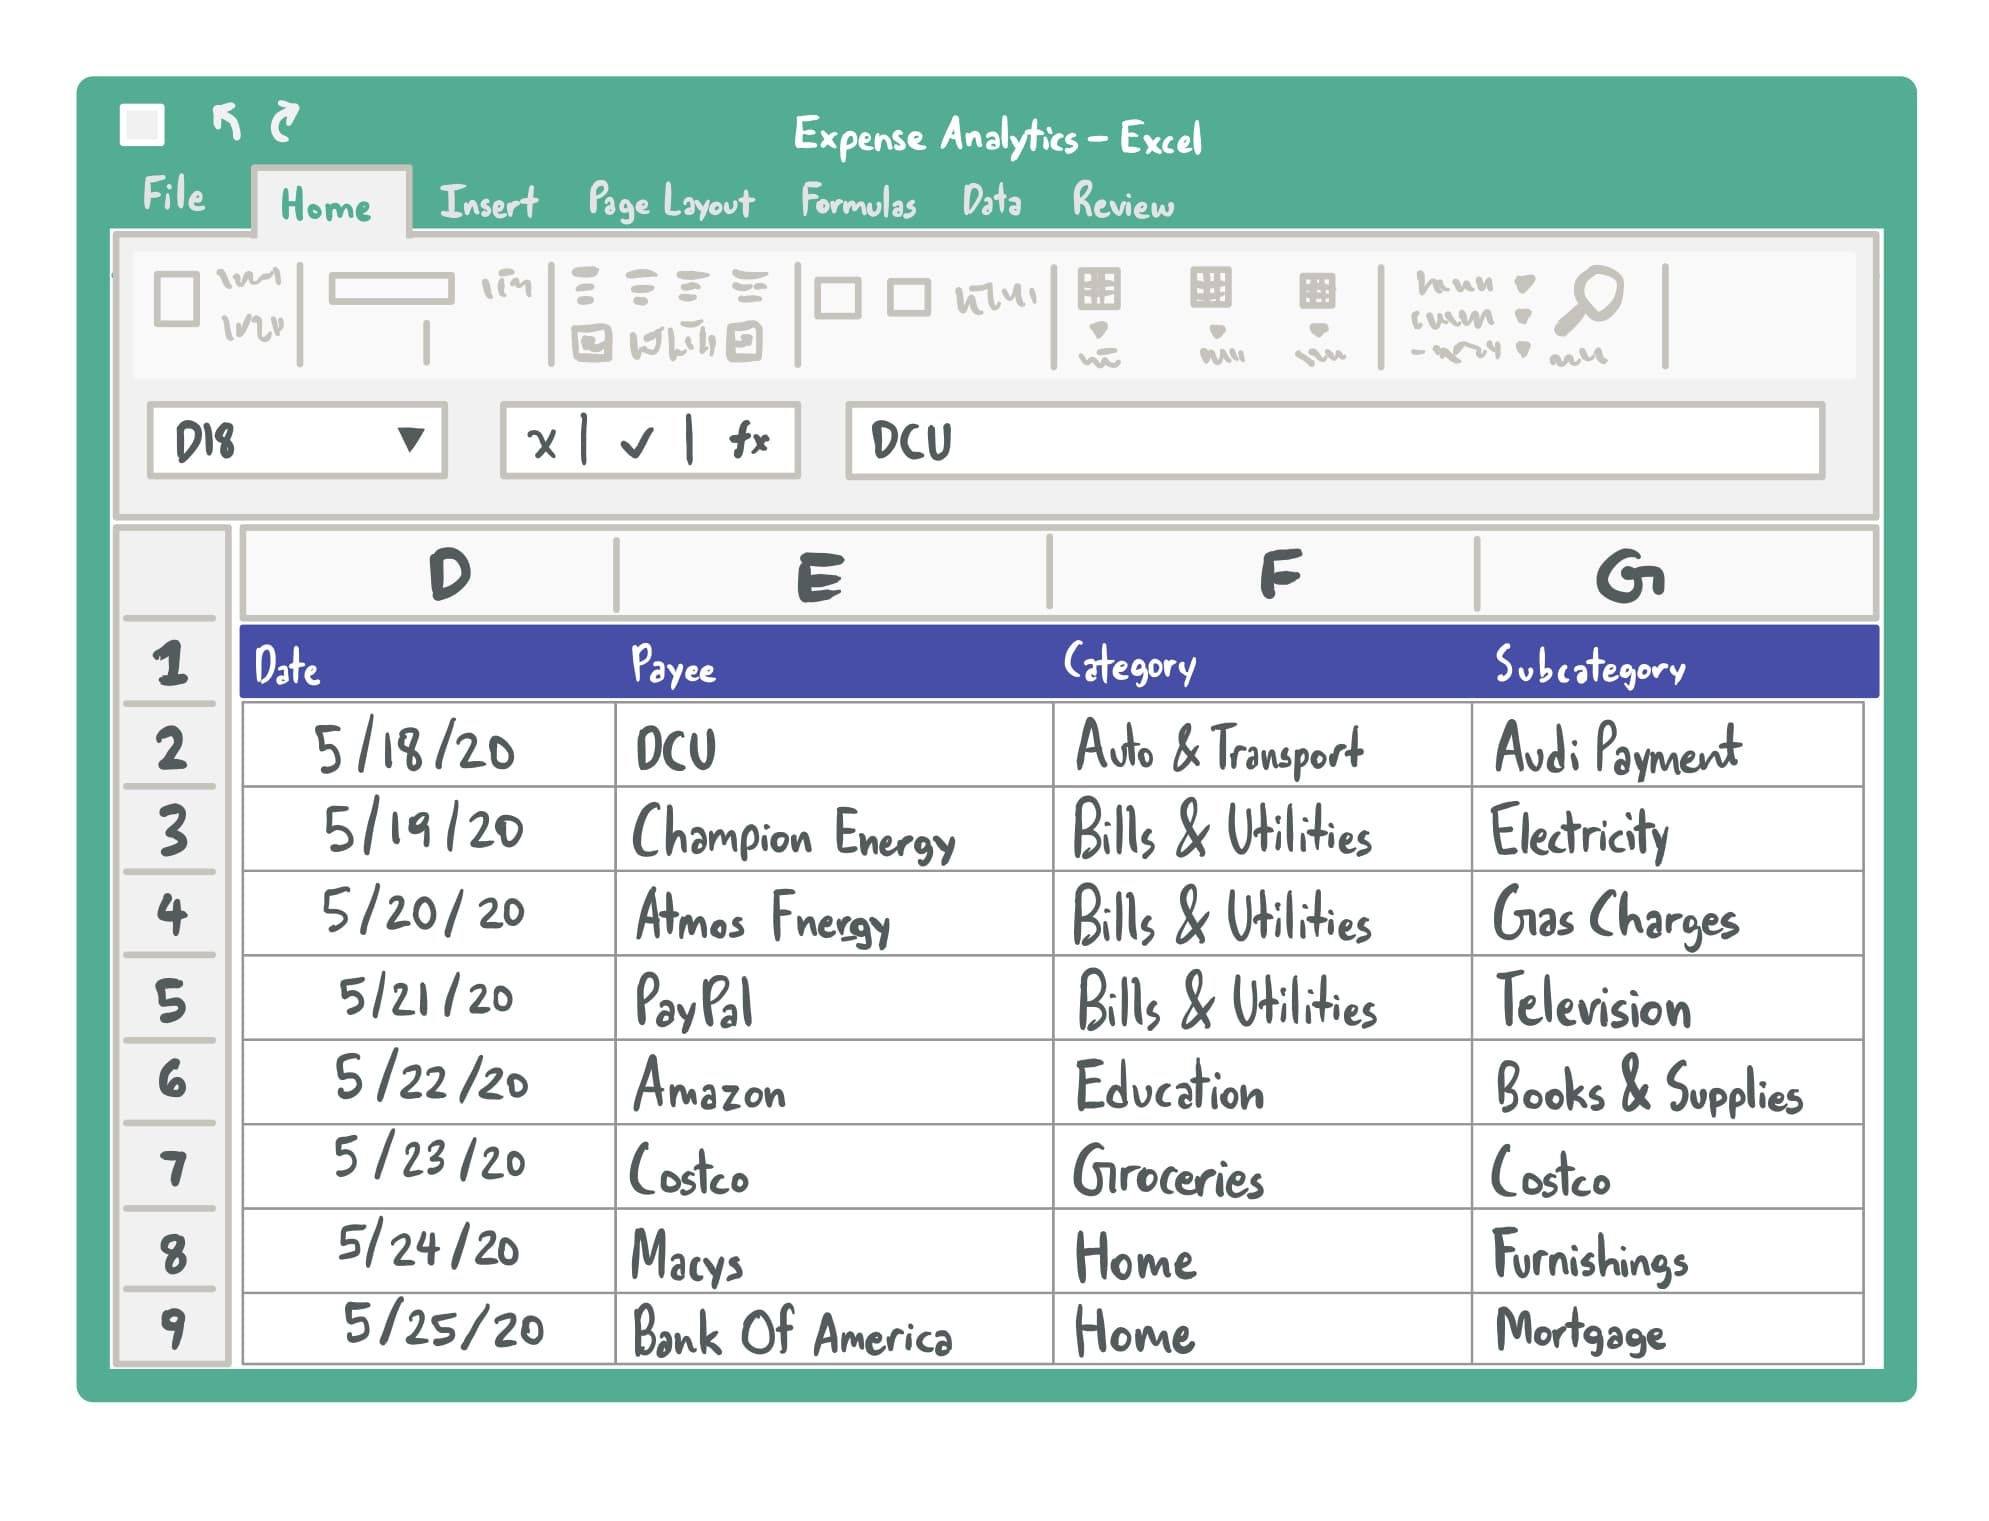 Expense Analytics - Excel
File Home Insert Page Layout Formulas Data Review
D18 ▼ x | ✓ | fx DCU
D E F G
1 Date Payee Category Subcategory
2 5/18/20 DCU Auto & Transport Audi Payment
3 5/19/20 Champion Energy Bills & Utilities Electricity
4 5/20/20 Atmos Fnergy Bills & Utilities Gas Charges
5 5/21/20 PayPal Bills & Utilities Television
6 5/22/20 Amazon Education Books & Supplies
7 5/23/20 Costco Groceries Costco
8 5/24/20 Macys Home Furnishings
9 5/25/20 Bank Of America Home Mortgage